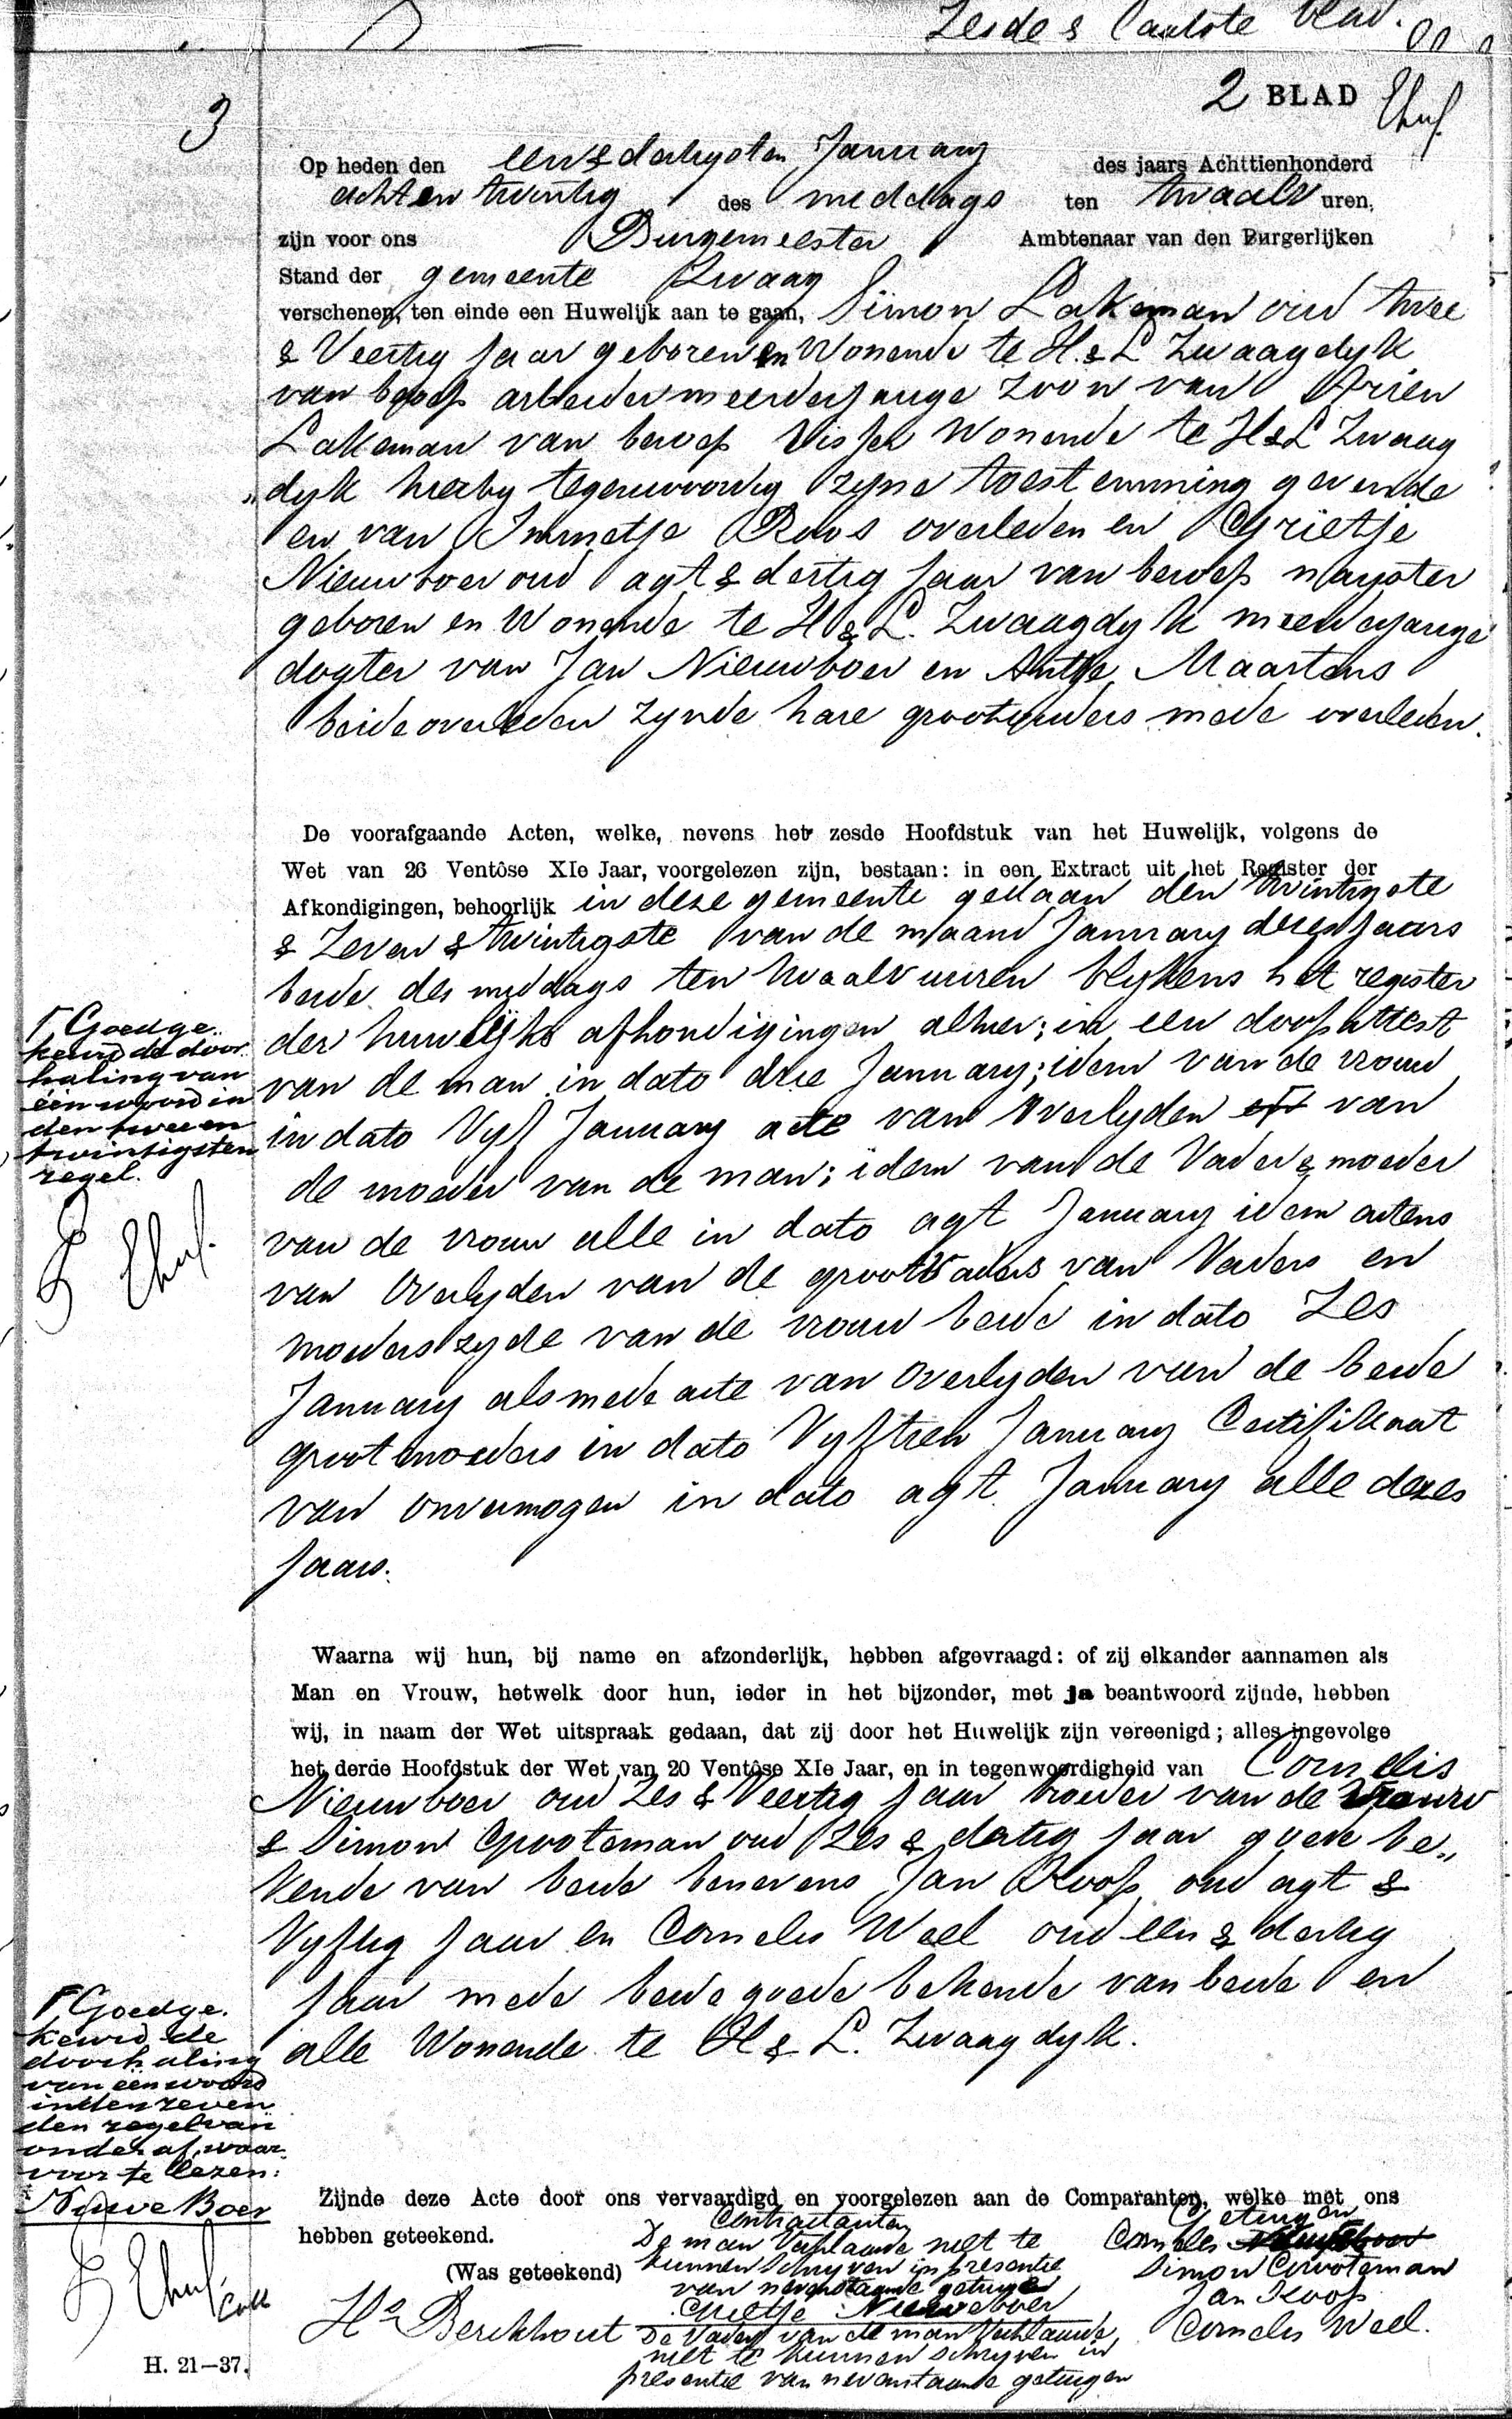 Zesde & laatste blad.
3
2 BLAD
Op heden den een & dertigsten January des jaars Achttienhonderd
acht en twintig des middags ten twaalv uren,
zijn voor ons Burgemeester Ambtenaar van den Burgerlijken
Stand der gemeente Zwaag
verschenen, ten einde een Huwelijk aan te gaan, Simon Lakeman oud twee
& Veertig Jaar geboren en Wonende te H. & L Zwaagdyk
van beroep arbeider meerderjarige zoon van Arien
Lakeman van beroep Visser Wonende te H & L Zwaag
„dyk hierby tegenwoordig zyne toestemming gevende
en van Immetje Roos overleden en Grietje
Nieuwboer oud agt & dertig Jaar van beroep nayster
geboren en Wonende te H & L. Zwaagdyk meerderjarige
dogter van Jan Nieuwboer en Antje Maartens
beide overleden zynde hare grootouders mede overleden.
De voorafgaande Acten, welke, nevens het zesde Hoofdstuk van het Huwelijk, volgens de
Wet van 26 Ventôse XIe Jaar, voorgelezen zijn, bestaan: in een Extract uit het Register der
Afkondigingen, behoorlijk in deze gemeente gedaan den twintigste
& Zeven & twintigste van de maand January dezes Jaars
beide des middags ten twaalv uuren blykens het register
der huwelijks afkondigingen alhier; in een doop attest
van de man in dato drie January; idem van de vrouw
in dato Vyf January acte van Overlyden van
de moeder van de man; idem van de Vader & moeder
van de vrouw alle in dato agt January idem actens
van Overlyden van de grootvaders van Vaders en
moeders zyde van de vrouw beide in dato Zes
January alsmede acte van overlyden van de beide
grootmoeders in dato Vyftien January Certifikaat
van onvermogen in dato agt January alle dezes
Jaars.
Γ Goedge„
keurd de door„
haling van
één woord in
den twee en
twintigsten
regel.
Waarna wij hun, bij name en afzonderlijk, hebben afgevraagd: of zij elkander aannamen als
Man en Vrouw, hetwelk door hun, ieder in het bijzonder, met ja beantwoord zijnde, hebben
wij, in naam der Wet uitspraak gedaan, dat zij door het Huwelijk zijn vereenigd; alles ingevolge
het derde Hoofdstuk der Wet van 20 Ventôse XIe Jaar, en in tegenwoordigheid van Cornelis
Nieuwboer oud Zes & Veertig Jaar broeder van de vrouw
& Simon Grooteman oud Zes & dertig Jaar goede be„
kende van beide benevens Jan Koop oud agt &
Vyftig Jaar en Cornelis Weel oud een & dertig
Jaar mede beide goede bekende van beide en
alle Wonende te H & L. Zwaagdyk.
Γ Goedge.
keurd de
doorhaling
van één woord
in den zeven
den regel van
onder af, waar„
voor te lezen:
Nieuwe Boer
Zijnde deze Acte door ons vervaardigd en voorgelezen aan de Comparanten, welke met ons
hebben geteekend.
(Was geteekend)
Contractanten
De man Verklaarde niet te
kunnen schryven in presentie
van nevenstaande getuigen
Grietje Nieuweboer
De Vader van de man Verklaarde
niet te kunnen schryven in
presentie van nevenstaande getuigen
Getuigen
Cornelis Nieuweboer
Simon Grooteman
Jan Koop
Cornelis Weel.
Hs Berckhout
H. 21—37.